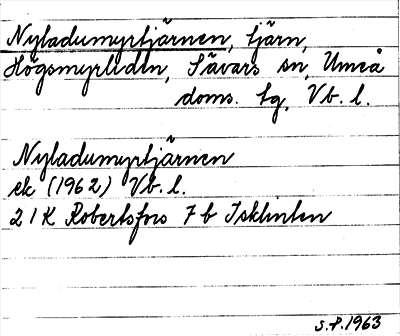 Nyladumyrtjärnen, tjärn,
Högsmyrliden, Sävars sn, Umeå
doms. tg, Vb. l.
Nyladumyrtjärnen
ek (1962) Vb. l.
21K Robertsfors 7b Isklinten
S.P. 1963